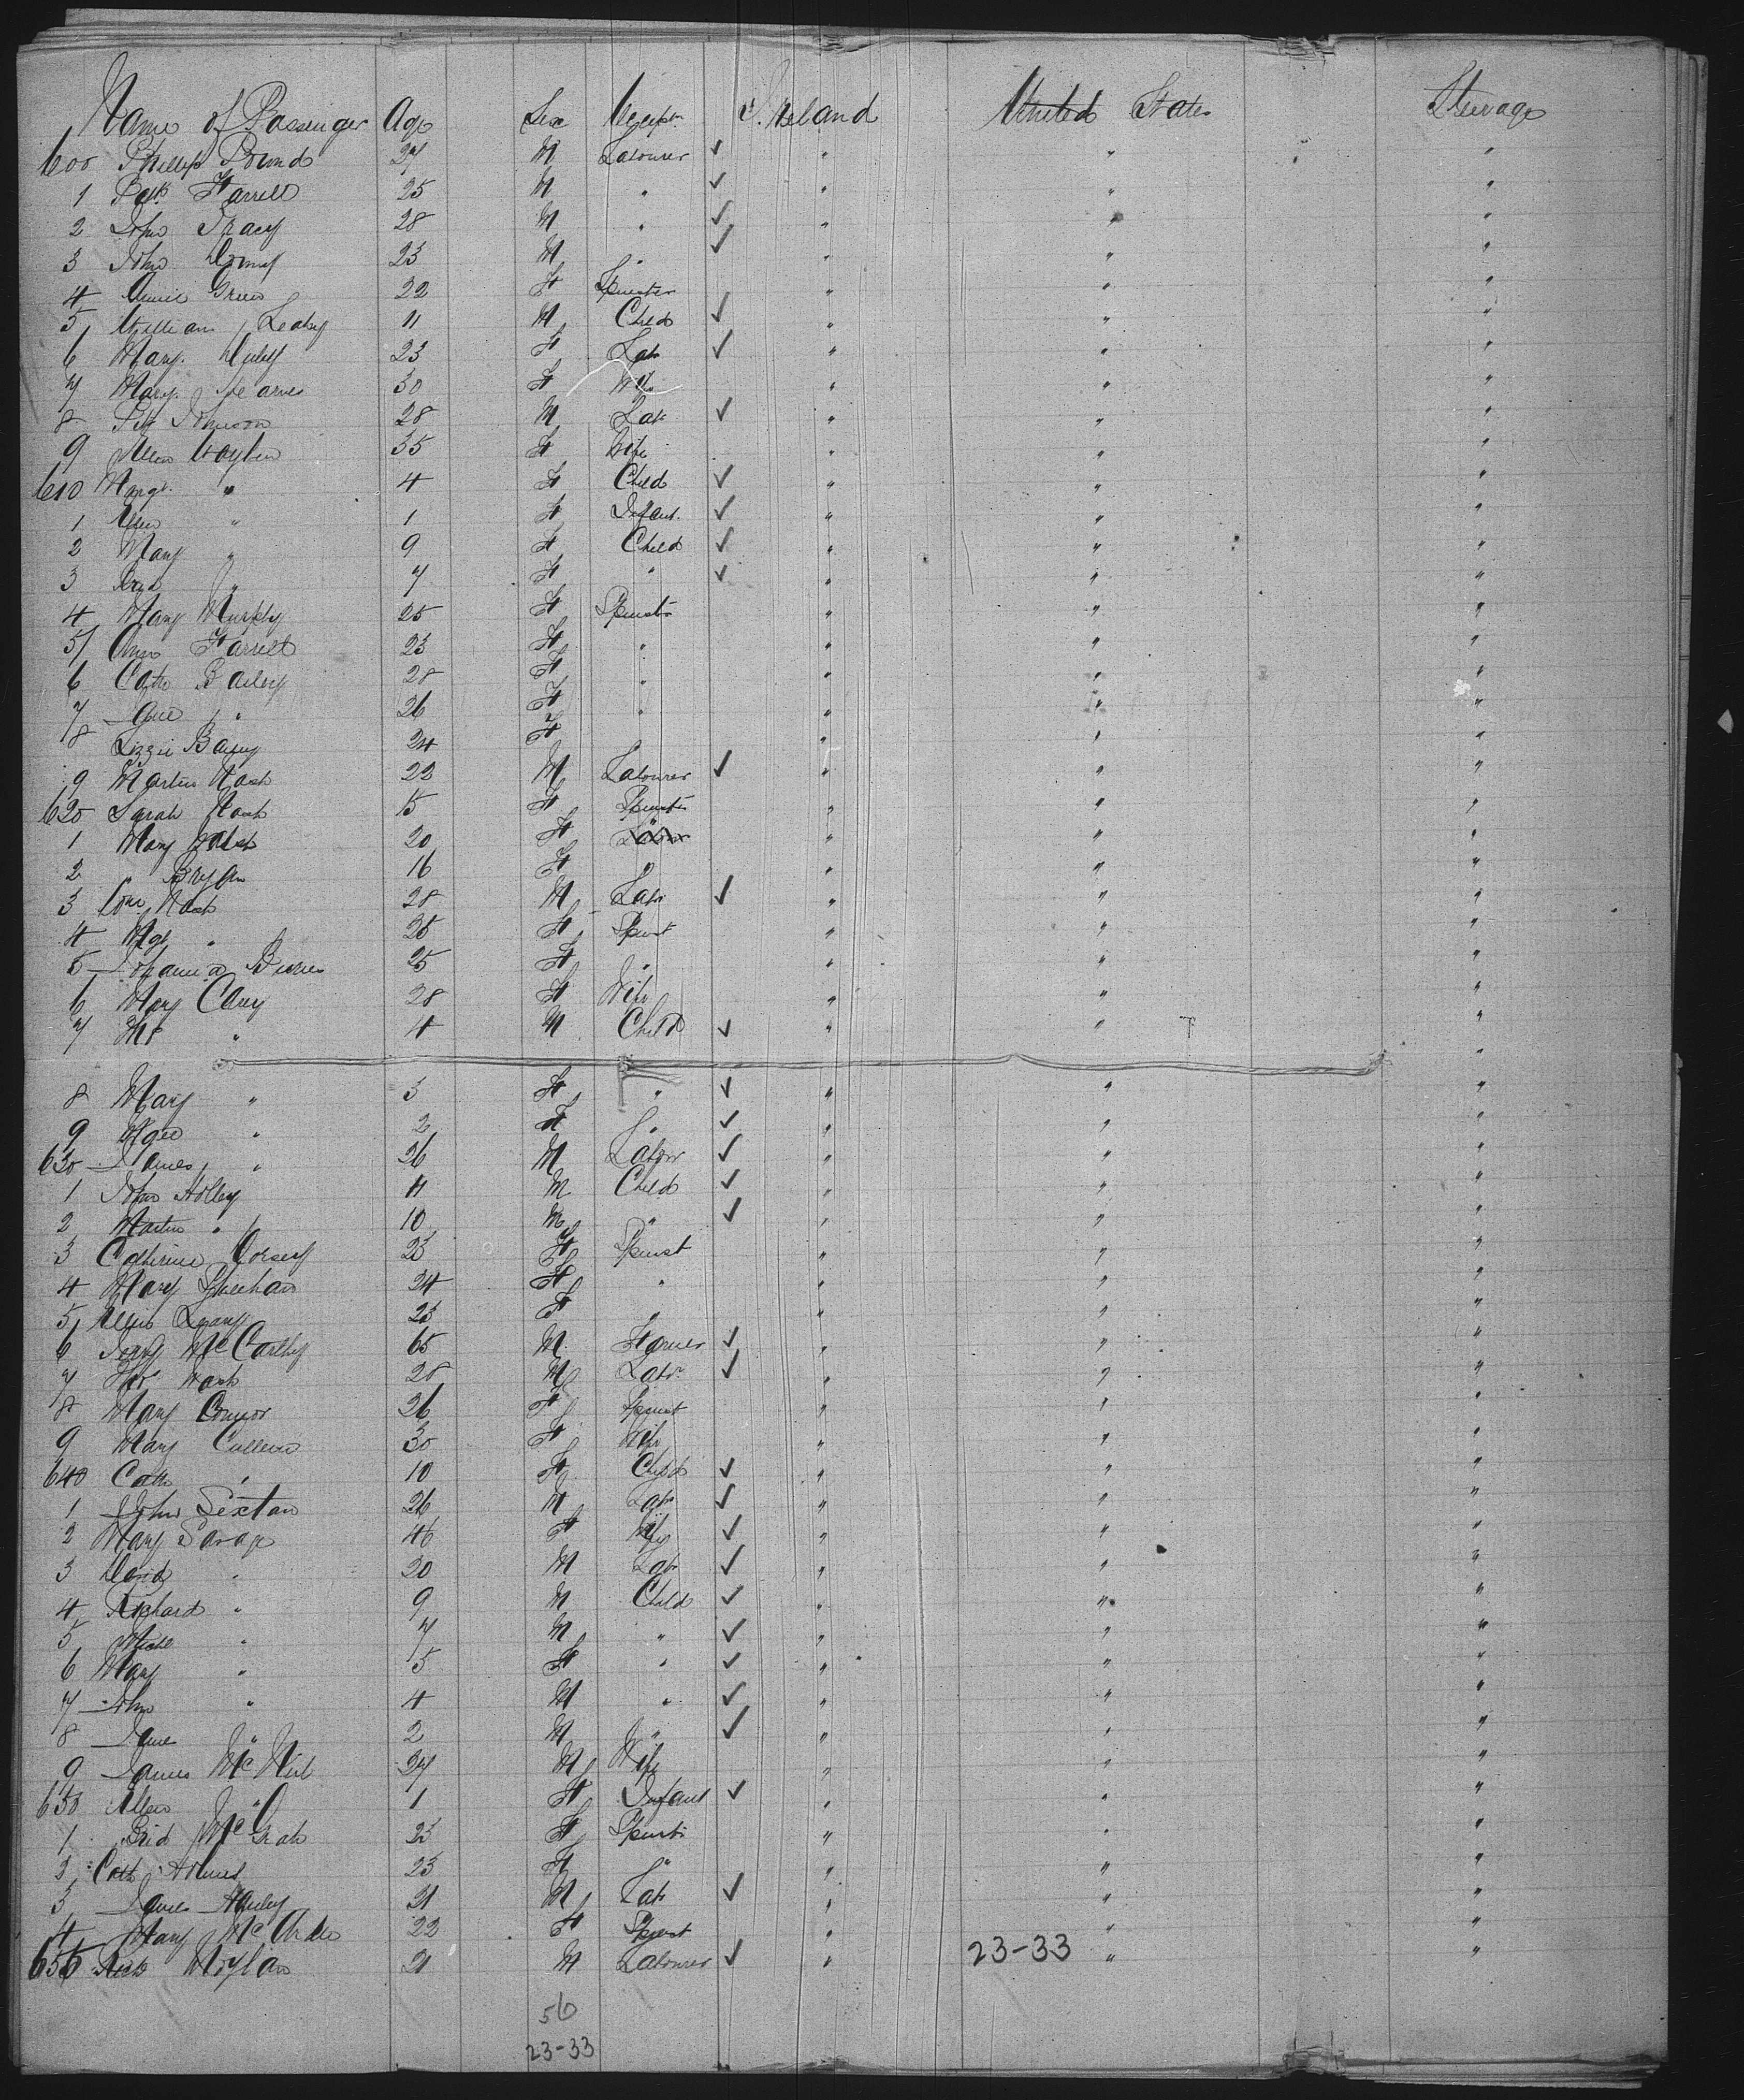 Name of Passenger Age Sex Occupn. Ireland United States Steerage
600 Phillip Pound 27 M Labourer ✓ " " "
1 Patk Farrell 25 M " ✓ " " "
2 John Tracy 28 M " ✓ " " "
3 John 23 M " ✓ " " "
4 Annie Green 22 F Spinster " " "
5 William Leahy 11 M Child ✓ " " "
6 Mary 23 F Lab ✓ " " "
7 Mary 30 F Wife " " "
8 Johnson 28 M Lab ✓ " " "
9 Ellen Hayden 35 F Wife " " "
610 Margt. " 4 F Child ✓ " " "
1 Ellen " 1 F Infant. ✓ " " "
2 Mary " 9 F Child ✓ " " "
3 Brid " 7 F " ✓ " " "
4 Mary Murphy 25 F Spinstr " " "
5 Ann Farrell 23 F " " " "
6 Cath Bailey 28 F " " " "
7 Jane " 26 F " " " "
8 Lizzie 24 F " " "
9 Martin Nash 22 M Labourer ✓ " " "
620 Sarah Nash 15 F Spinstr " " "
1 Mary Walsh 20 F " " " "
2 Bryan 16 F " " " "
3 Nash 28 M Labr ✓ " " "
4 Mgt " 25 F Spinst " " "
5 Johanna 25 F " " " "
6 Mary Clancy 28 F Wife " " "
7 " 4 M Child ✓ " " "
8 Mary " 3 F " ✓ " " "
9 " 2 F " ✓ " " "
630 James " 26 M Labour ✓ " " "
1 John Holley 11 M Child ✓ " " "
2 Martin " 10 M " ✓ " " "
3 Catherine Dorsey 25 F Spinst " " "
4 Mary Sheehan 24 F " " " "
5 Ellen Leary 23 F " " " "
6 McCarthy 65 M Farmer ✓ " " "
7 Nash 28 M Labr. ✓ " " "
8 Mary Connor 26 F Spinst " " "
9 Mary Cullen 30 F Wife " " "
640 Cath " 10 F Child ✓ " " "
1 John Sexton 26 M Labr ✓ " " "
2 Mary Savage 46 F Wife ✓ " " "
3 David " 20 M Labr ✓ " " "
4 Richard " 9 M Child ✓ " " "
5 Michl " 7 M " ✓ " " "
6 Mary " 5 F " ✓ " " "
7 John " 4 M " ✓ " " "
8 Jane " 2 M " ✓ " " "
9 James McNeil 27 M Wife " " "
650 Ellen " 1 F Infant ✓ " " "
1 Brid McGrath 25 F Spinstr " " "
2 Cath Holmes 23 F " " " "
3 James Hanley 21 M Labr ✓ " " "
4 Mary McArdle 22 F Spinst " " "
655 Rich Moylan 21 M Labourer ✓ " 23-33 " "
56
23-33